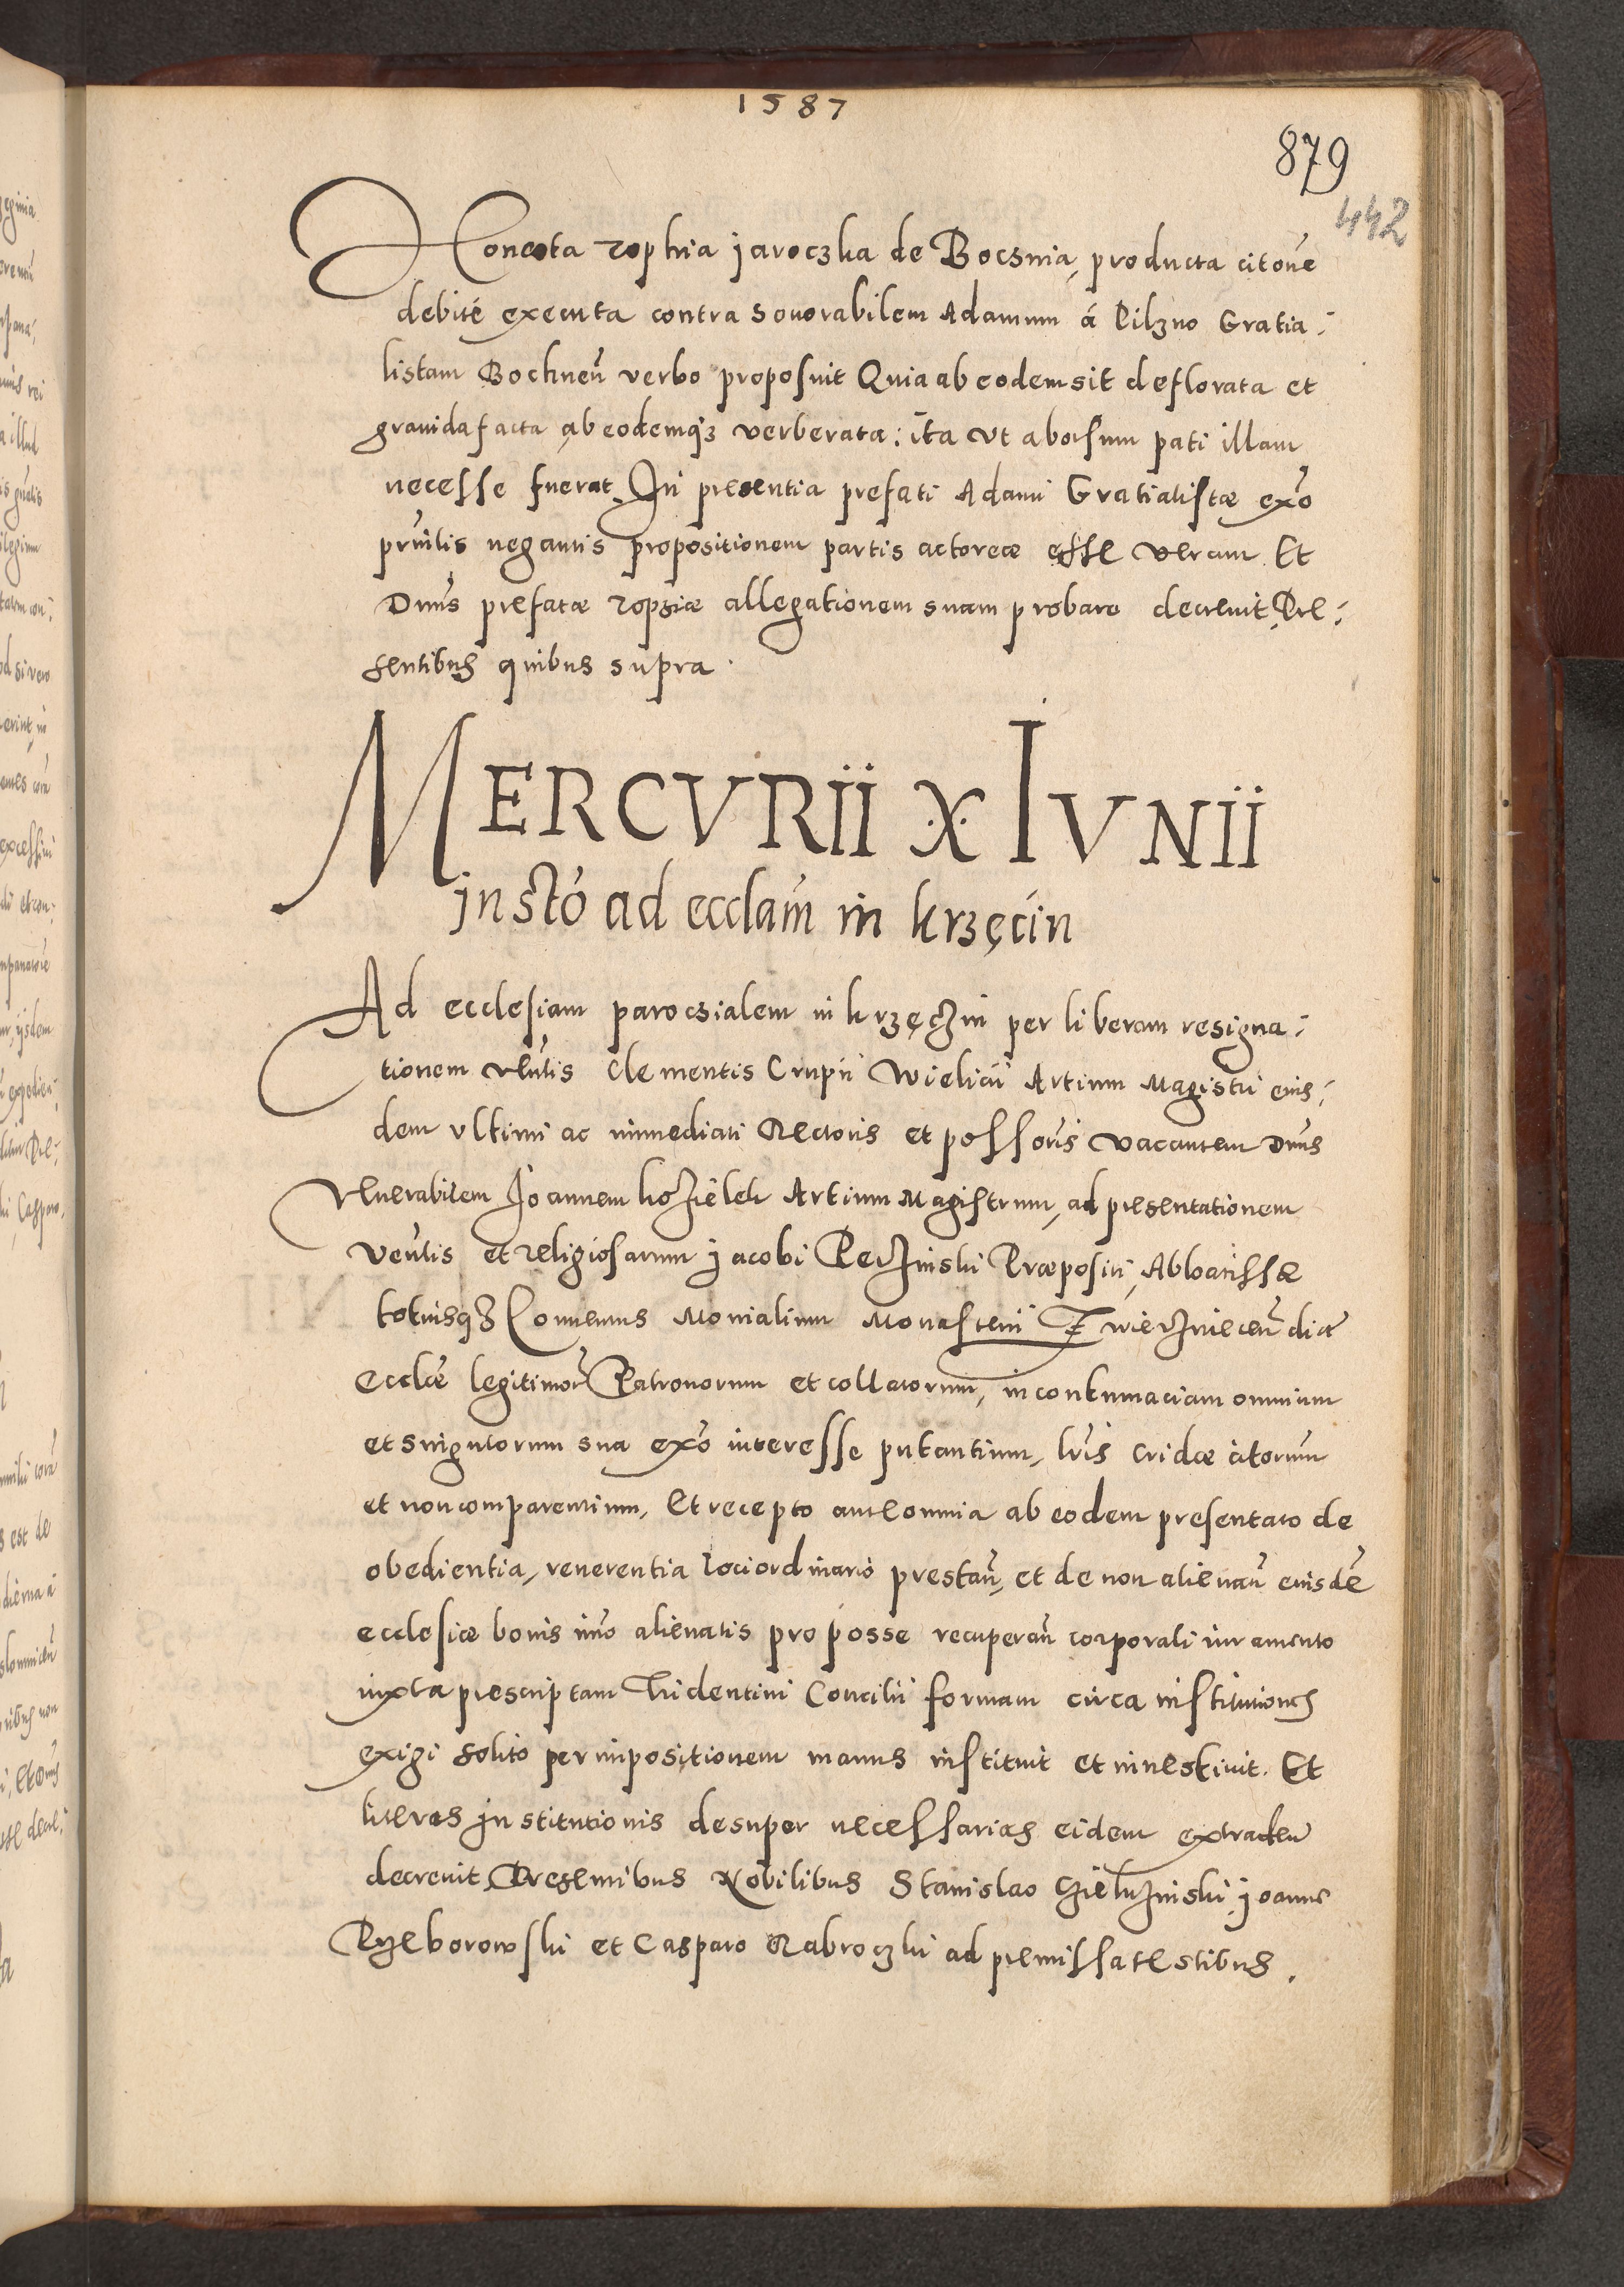 1587
879
442
Honesta Zophia Jaroczka de Bochnia, producta citoné
debité executa contra honorabilem Adamum á Pilzno Gratia-
listam Bochneñ verbo proposuit Quia ab eodem sit deflorata et
grauida facta ab eodemqʒ verberata: ita vt aborsum pati illam
necesse fuerat. In presentia prefati Adami Gratialistæ exõ
pruilis negantis propositionem partis actoreæ esse veram. Et
Dnus prefatæ Zophiæ allegationem suam probare decreuit, Pre-
sentibus quibus supra.
MERCVRII X IVNII
Jnstõ ad ecclam in Krzęcin
Ad ecclesiam parochialem in Krzęczin per liberam resigna-
tionem Venlis Clementis Crupii Wielicii Artium Magistri eius-
dem vltimi ac immediati Rectoris et possoris vacantem Dnus
Venerabilem Joannem Kozielek Artium Magistrum, ad presentationem
Venlis et religiosarum Jacobi Pećinski Præpositi, Abbatissæ
totiusqʒ Conuentus Monialium Monasterii Zwierzinieceñ dictæ
ecclæ legitimorũ Patronorum et collatorum, in contumaciam omnium
et singulorum sua exõ interesse putantium, lris cridæ citorum
et non comparentium, Et recepto ante omnia ab eodem presentato de
obedientia, reuerentia loci ordinario prestañ, et de non alienañ eiusdẽ
ecclesiæ bonis imõ alienatis pro posse recuperañ corporali iuramento
iuxta prescriptam Tridentini Concilii formam circa institutiones
exigi solito per impositionem manus instituit et inuestiuit. Et
literas institutionis desuper necessarias eidem extradeñ
decreuit, Presentibus Nobilibus Stanislao Gielczinski, Joanne
Przeborowski et Casparo Nabroczki ad premissa testibus.